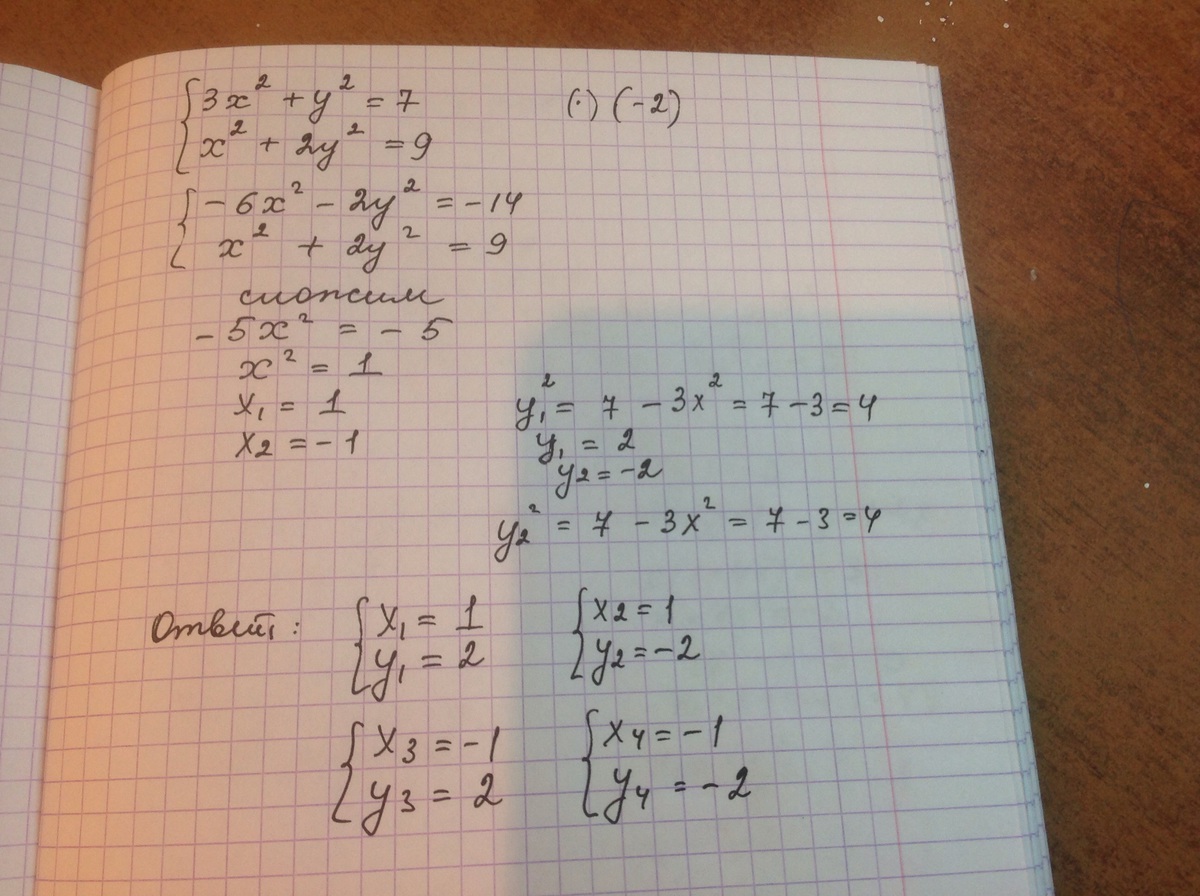 3x² + y² = 7 (·) (-2)
x² + 2y² = 9
-6x² - 2y² = -14
x² + 2y² = 9
сложим
-5x² = -5
x² = 1
x₁ = 1
x₂ = -1
y₁² = 7 - 3x² = 7 - 3 = 4
y₁ = 2
y₂ = -2
y₂² = 7 - 3x² = 7 - 3 = 4
Ответ:
x₁ = 1
y₁ = 2
x₂ = 1
y₂ = -2
x₃ = -1
y₃ = 2
x₄ = -1
y₄ = -2